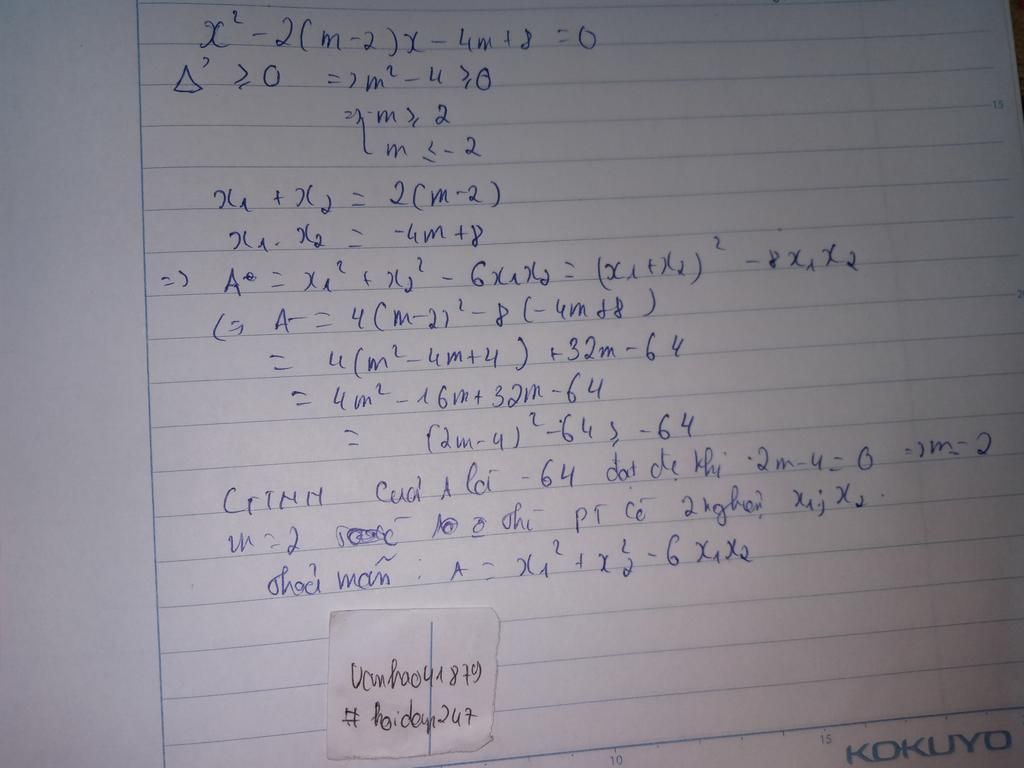 x² - 2(m-2)x - 4m+8 = 0
Δ' ≥ 0 => m² - 4 ≥ 0
=> m ≥ 2
m ≤ -2
x₁ + x₂ = 2(m-2)
x₁ . x₂ = -4m+8
=> A = x₁² + x₂² - 6x₁x₂ = (x₁+x₂)² - 8x₁x₂
(=> A = 4(m-2)² - 8(-4m+8)
= 4(m² - 4m+4) + 32m - 64
= 4m² - 16m + 32m - 64
= (2m-4)² - 64 ≥ -64
GTNN của A là -64 đạt đc khi 2m-4=0 => m=2
m=2 thì PT có 2 nghiệm x₁; x₂.
thoả mãn : A = x₁² + x₂² - 6x₁x₂
Vanhao41879
# hoidap247
15
10
15
KOKUYO